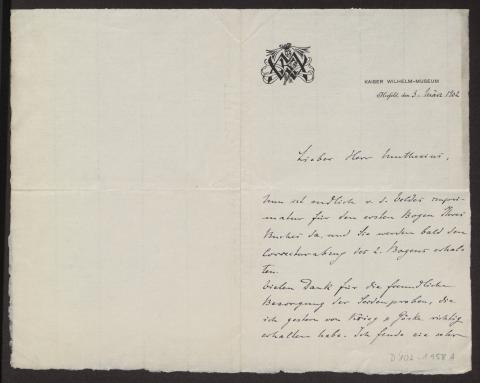 KAISER WILHELM-MUSEUM
Krefeld, den 3. März 1902
Lieber Herr Muthesius,
Nun ist endlich v. d. Veldes impri-
matur für den ersten Bogen Ihres
Buches da, und Sie werden bald den
Correcturabzug des 2. Bogens erhal-
ten.
Vielen Dank für die freundliche
Besorgung der Seidenproben, die
ich gestern von richtig
erhalten habe. Ich finde sie sehr
D 102-1958 A